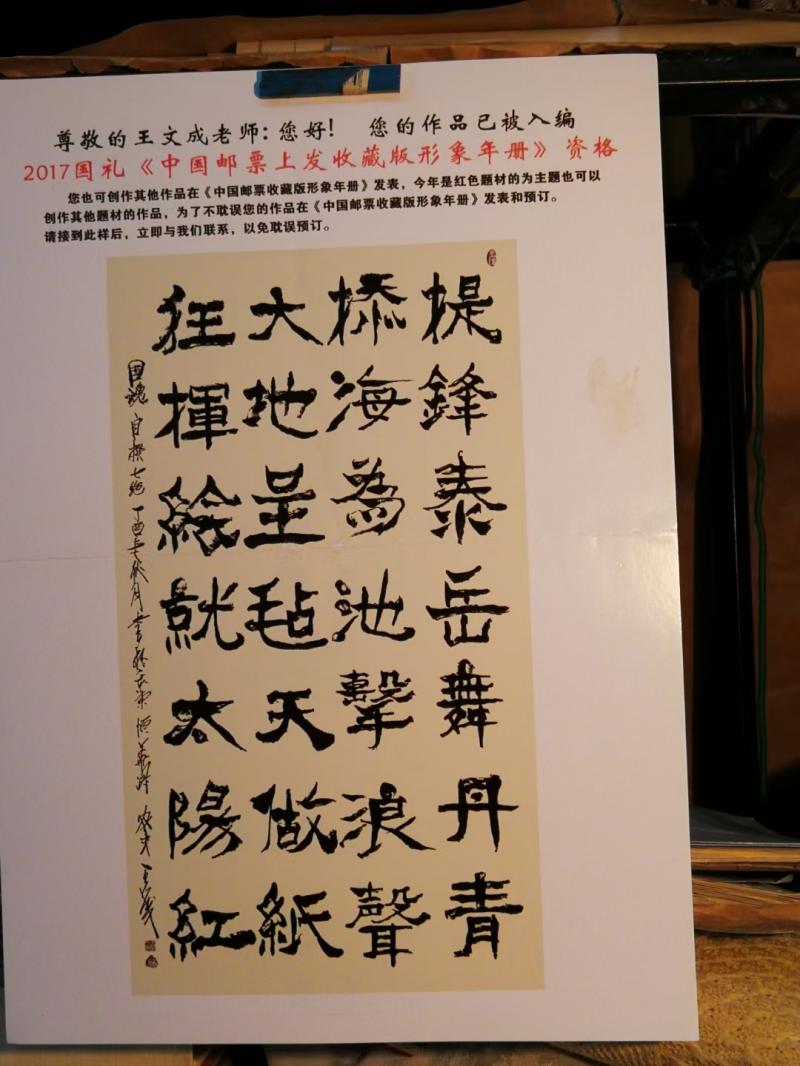 尊敬的王文成老师：您好！ 您的作品已被入编
2017国礼《中国邮票上发收藏版形象年册》资格
您也可创作其他作品在《中国邮票收藏版形象年册》发表，今年是红色题材的为主题也可以
创作其他题材的作品，为了不耽误您的作品在《中国邮票收藏版形象年册》发表和预订。
请接到此样后，立即与我们联系，以免耽误预订。
提鋒泰岳舞丹青
㮇海為池擊浪聲
大地呈毡天做紙
狂揮絵就太陽紅
国魂 自撰七绝 丁酉年秋月書於